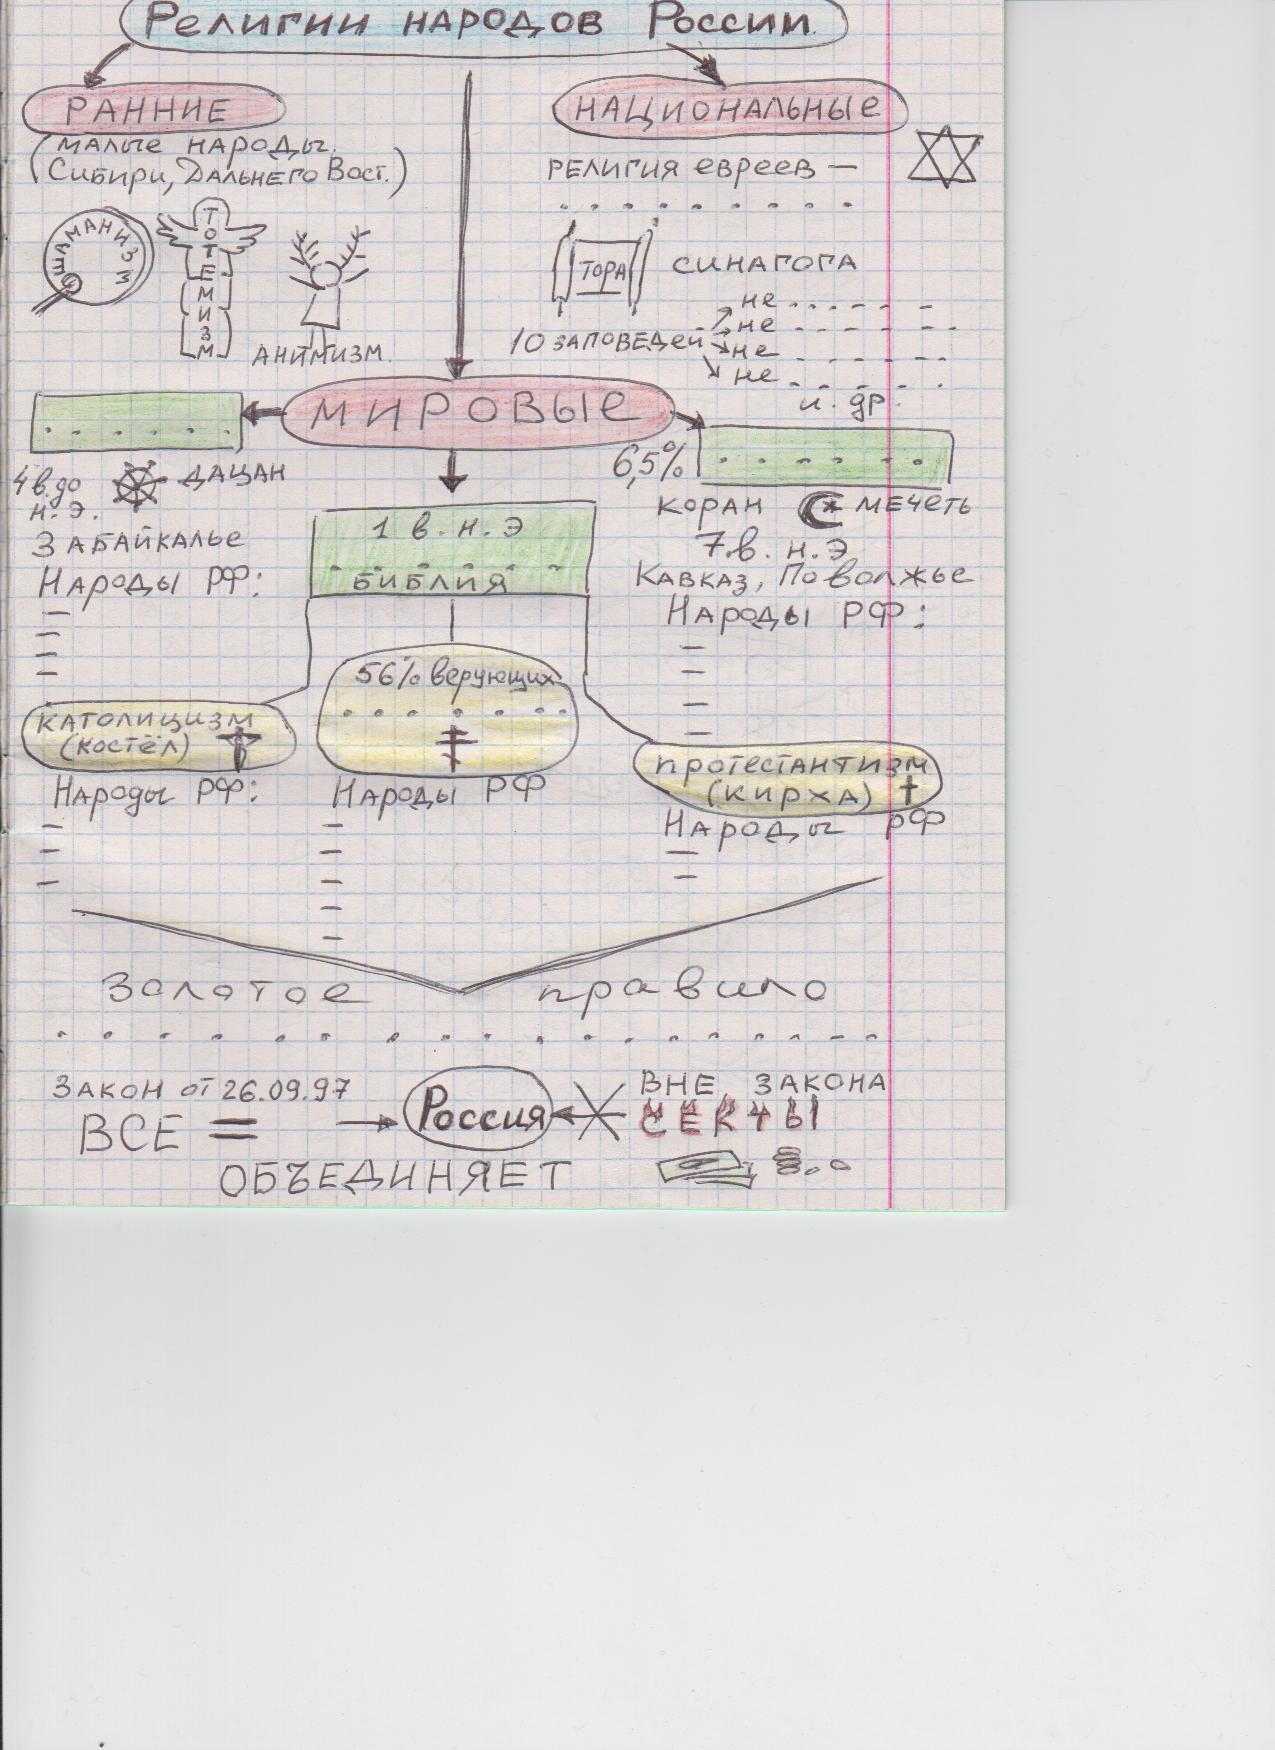 Религии народов России.
РАННИЕ
(малые народы.
Сибири, Дальнего Вост.)
ШАМАНИЗМ
ТОТЕМИЗМ
АНИМИЗМ.
НАЦИОНАЛЬНЫЕ
РЕЛИГИЯ евреев —
ТОРА
СИНАГОГА
10 заповедей
не
не
не
не
и. др.
МИРОВЫЕ
4 в. до
н. э.
ДАЦАН
ЗАБАЙКАЛЬЕ
Народы РФ:
1 в. н. э
БИБЛИЯ
6,5%
КОРАН
МЕЧЕТЬ
7 в. н. э
КАВКАЗ, Поволжье
Народы РФ:
КАТОЛИЦИЗМ
(КОСТЁЛ)
Народы РФ:
56% верующих
Народы РФ
ПРОТЕСТАНТИЗМ
(КИРХА)
Народы РФ
Золотое правило
ЗАКОН от 26.09.97
ВСЕ =
Россия
ВНЕ ЗАКОНА
СЕКТЫ
ОБЪЕДИНЯЕТ